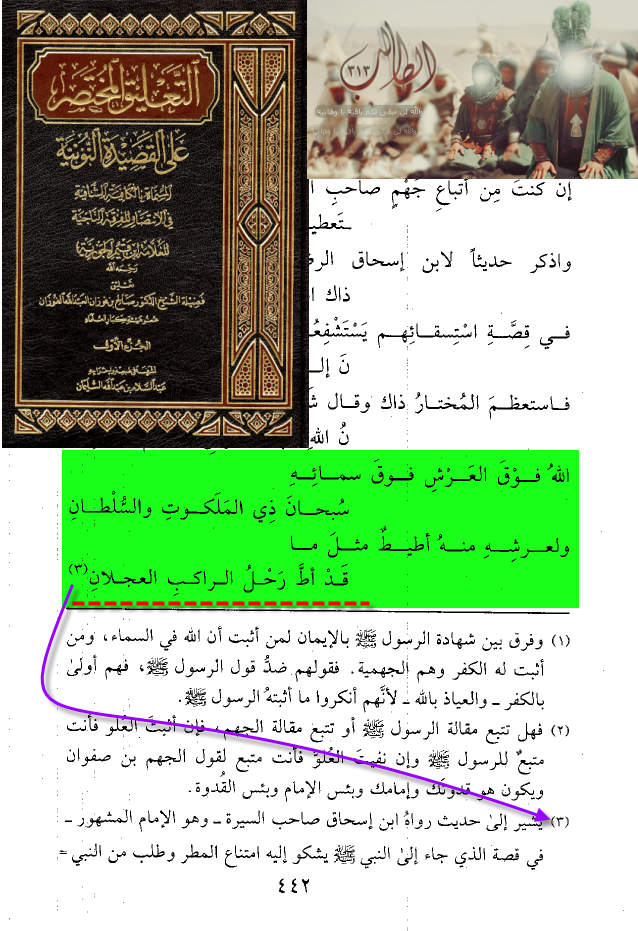 التعليق المختصر
على القصيدة النونية
المسماة بالكافية الشافية
في الانتصار للفرقة الناجية
للعلامة ابن قيم الجوزية
رحمه الله
تعليق
فضيلة الشيخ الدكتور صالح بن فوزان العبد الله الفوزان
عضو هيئة كبار العلماء
الجزء الأول
عبد السلام بن عبد الله السليمان
الطالب ٣١٣
والله لن تبقي لكم باقية يا وهابية
والله لن تبقي لكم باقية يا وهابية
إن كنتَ مِن أتباعِ جَهْمٍ صاحبِ
واذكر حديثاً لابن إسحاق
ذاك
في قِصَّةِ اسْتِسقائِهم يَسْتَشْفِعُ
نَ
فاستعظمَ المُختارُ ذاك وقال
نُ
اللهُ فوْقَ العَرْشِ فوقَ سمائِهِ
سُبحانَ ذِي المَلَكوتِ والسُّلْطانِ
ولعرشِهِ منهُ أطيطٌ مثلَ ما
قَدْ أطَّ رَحْلُ الراكبِ العجلانِ(٣)
(١) وفرق بين شهادة الرسول ﷺ بالإيمان لمن أثبت أن الله في السماء، ومن
أثبت له الكفر وهم الجهمية. فقولهم ضدُّ قول الرسول ﷺ، فهم أولىٰ
بالكفر ـ والعياذ بالله ـ لأنَّهم أنكروا ما أثبتهُ الرسول ﷺ.
(٢) فهل تتبع مقالة الرسول ﷺ أو تتبع مقالة الجهم، فإن أثبتَ العُلو فأنت
متبعٌ للرسول ﷺ وإن نفيتَ العُلوَّ فأنت متبع لقول الجهم بن صفوان
ويكون هو قدوتَك وإمامك وبئس الإمام وبئس القُدوة.
(٣) يشير إلىٰ حديث رواهُ ابن إسحاق صاحب السيرة ـ وهو الإمام المشهور ـ
في قصة الذي جاء إلىٰ النبي ﷺ يشكو إليه امتناع المطر وطلب من النبي =
٤٤٢